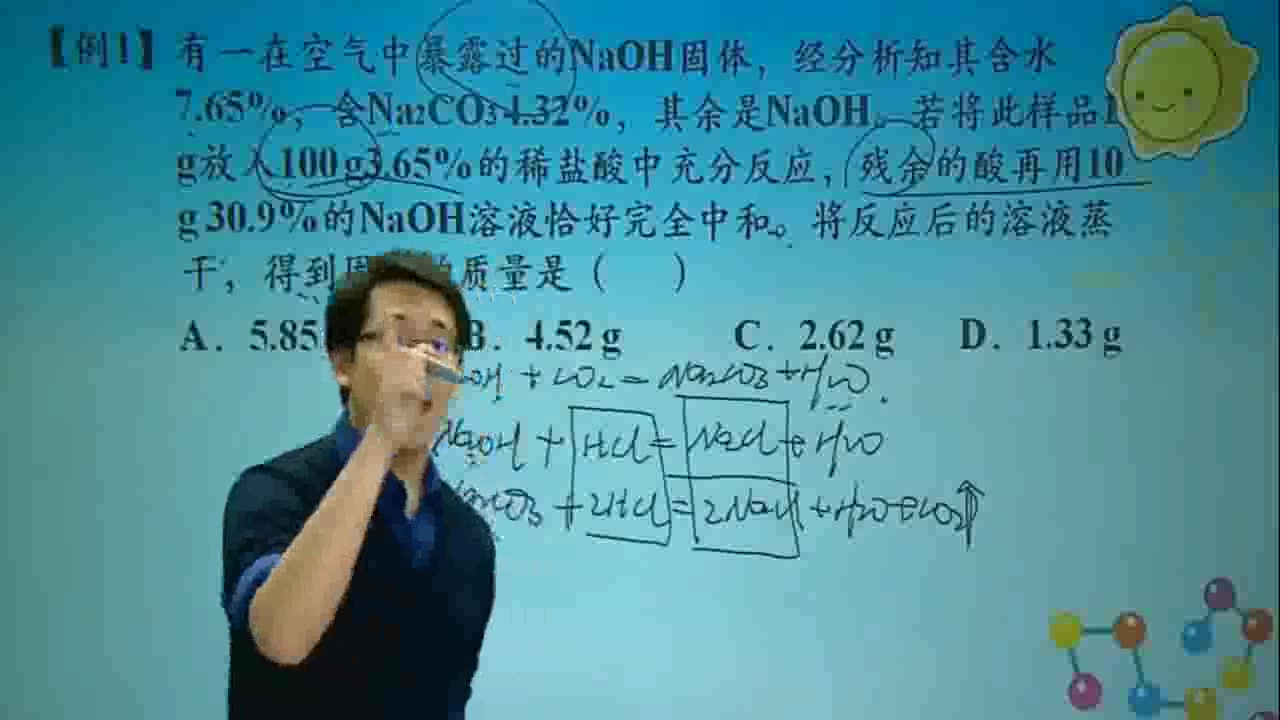 【例1】有一在空气中暴露过的NaOH固体，经分析知其含水
7.65%，含Na₂CO₃4.32%，其余是NaOH。若将此样品
g放入100g3.65%的稀盐酸中充分反应，残余的酸再用10
g30.9%的NaOH溶液恰好完全中和。将反应后的溶液蒸
干，得到 质量是（ ）
A．5.85 B．4.52g C．2.62g D．1.33g
+CO₂=Na₂CO₃+H₂O.
NaOH+HCl=NaCl+H₂O
CO₃+2HCl=2NaCl+H₂O+CO₂↑